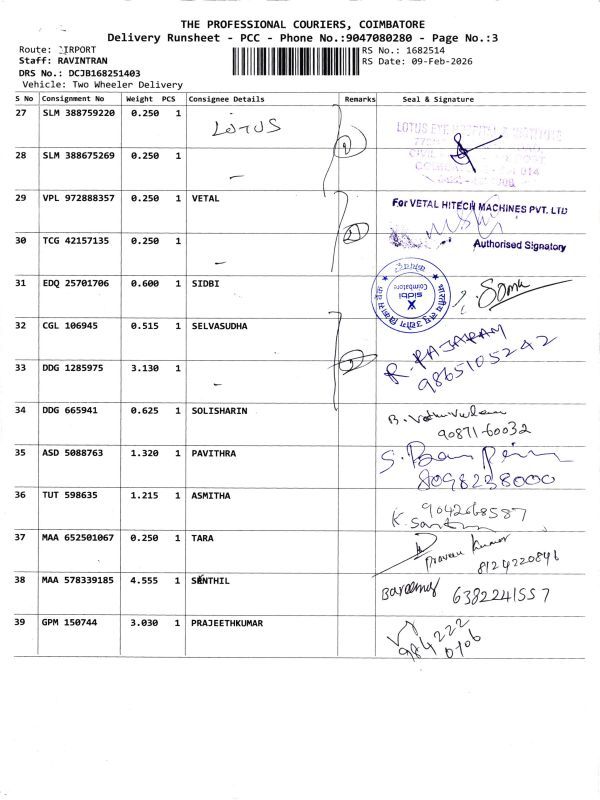 THE PROFESSIONAL COURIERS, COIMBATORE
Delivery Runsheet - PCC - Phone No.:9047080280 - Page No.:3
Route: AIRPORT
RS No.: 1682514
Staff: RAVINTRAN
RS Date: 09-Feb-2026
DRS No.: DCJB168251403
Vehicle: Two Wheeler Delivery
S No Consignment No Weight PCS Consignee Details Remarks Seal & Signature
27 SLM 388759220 0.250 1 LOTUS
28 SLM 388675269 0.250 1 -
29 VPL 972888357 0.250 1 VETAL For VETAL HITECH MACHINES PVT. LTD
30 TCG 42157135 0.250 1 - Authorised Signatory
31 EDQ 25701706 0.600 1 SIDBI sidbi Coimbatore
32 CGL 106945 0.515 1 SELVASUDHA R. RAJARAM
9865105242
33 DDG 1285975 3.130 1 -
34 DDG 665941 0.625 1 SOLISHARIN
90871-60032
35 ASD 5088763 1.320 1 PAVITHRA
8098238000
36 TUT 598635 1.215 1 ASMITHA 9042668587
37 MAA 652501067 0.250 1 TARA Praveen Kumar
8124220846
38 MAA 578339185 4.555 1 SENTHIL 6382241557
39 GPM 150744 3.030 1 PRAJEETHKUMAR 984222
0106